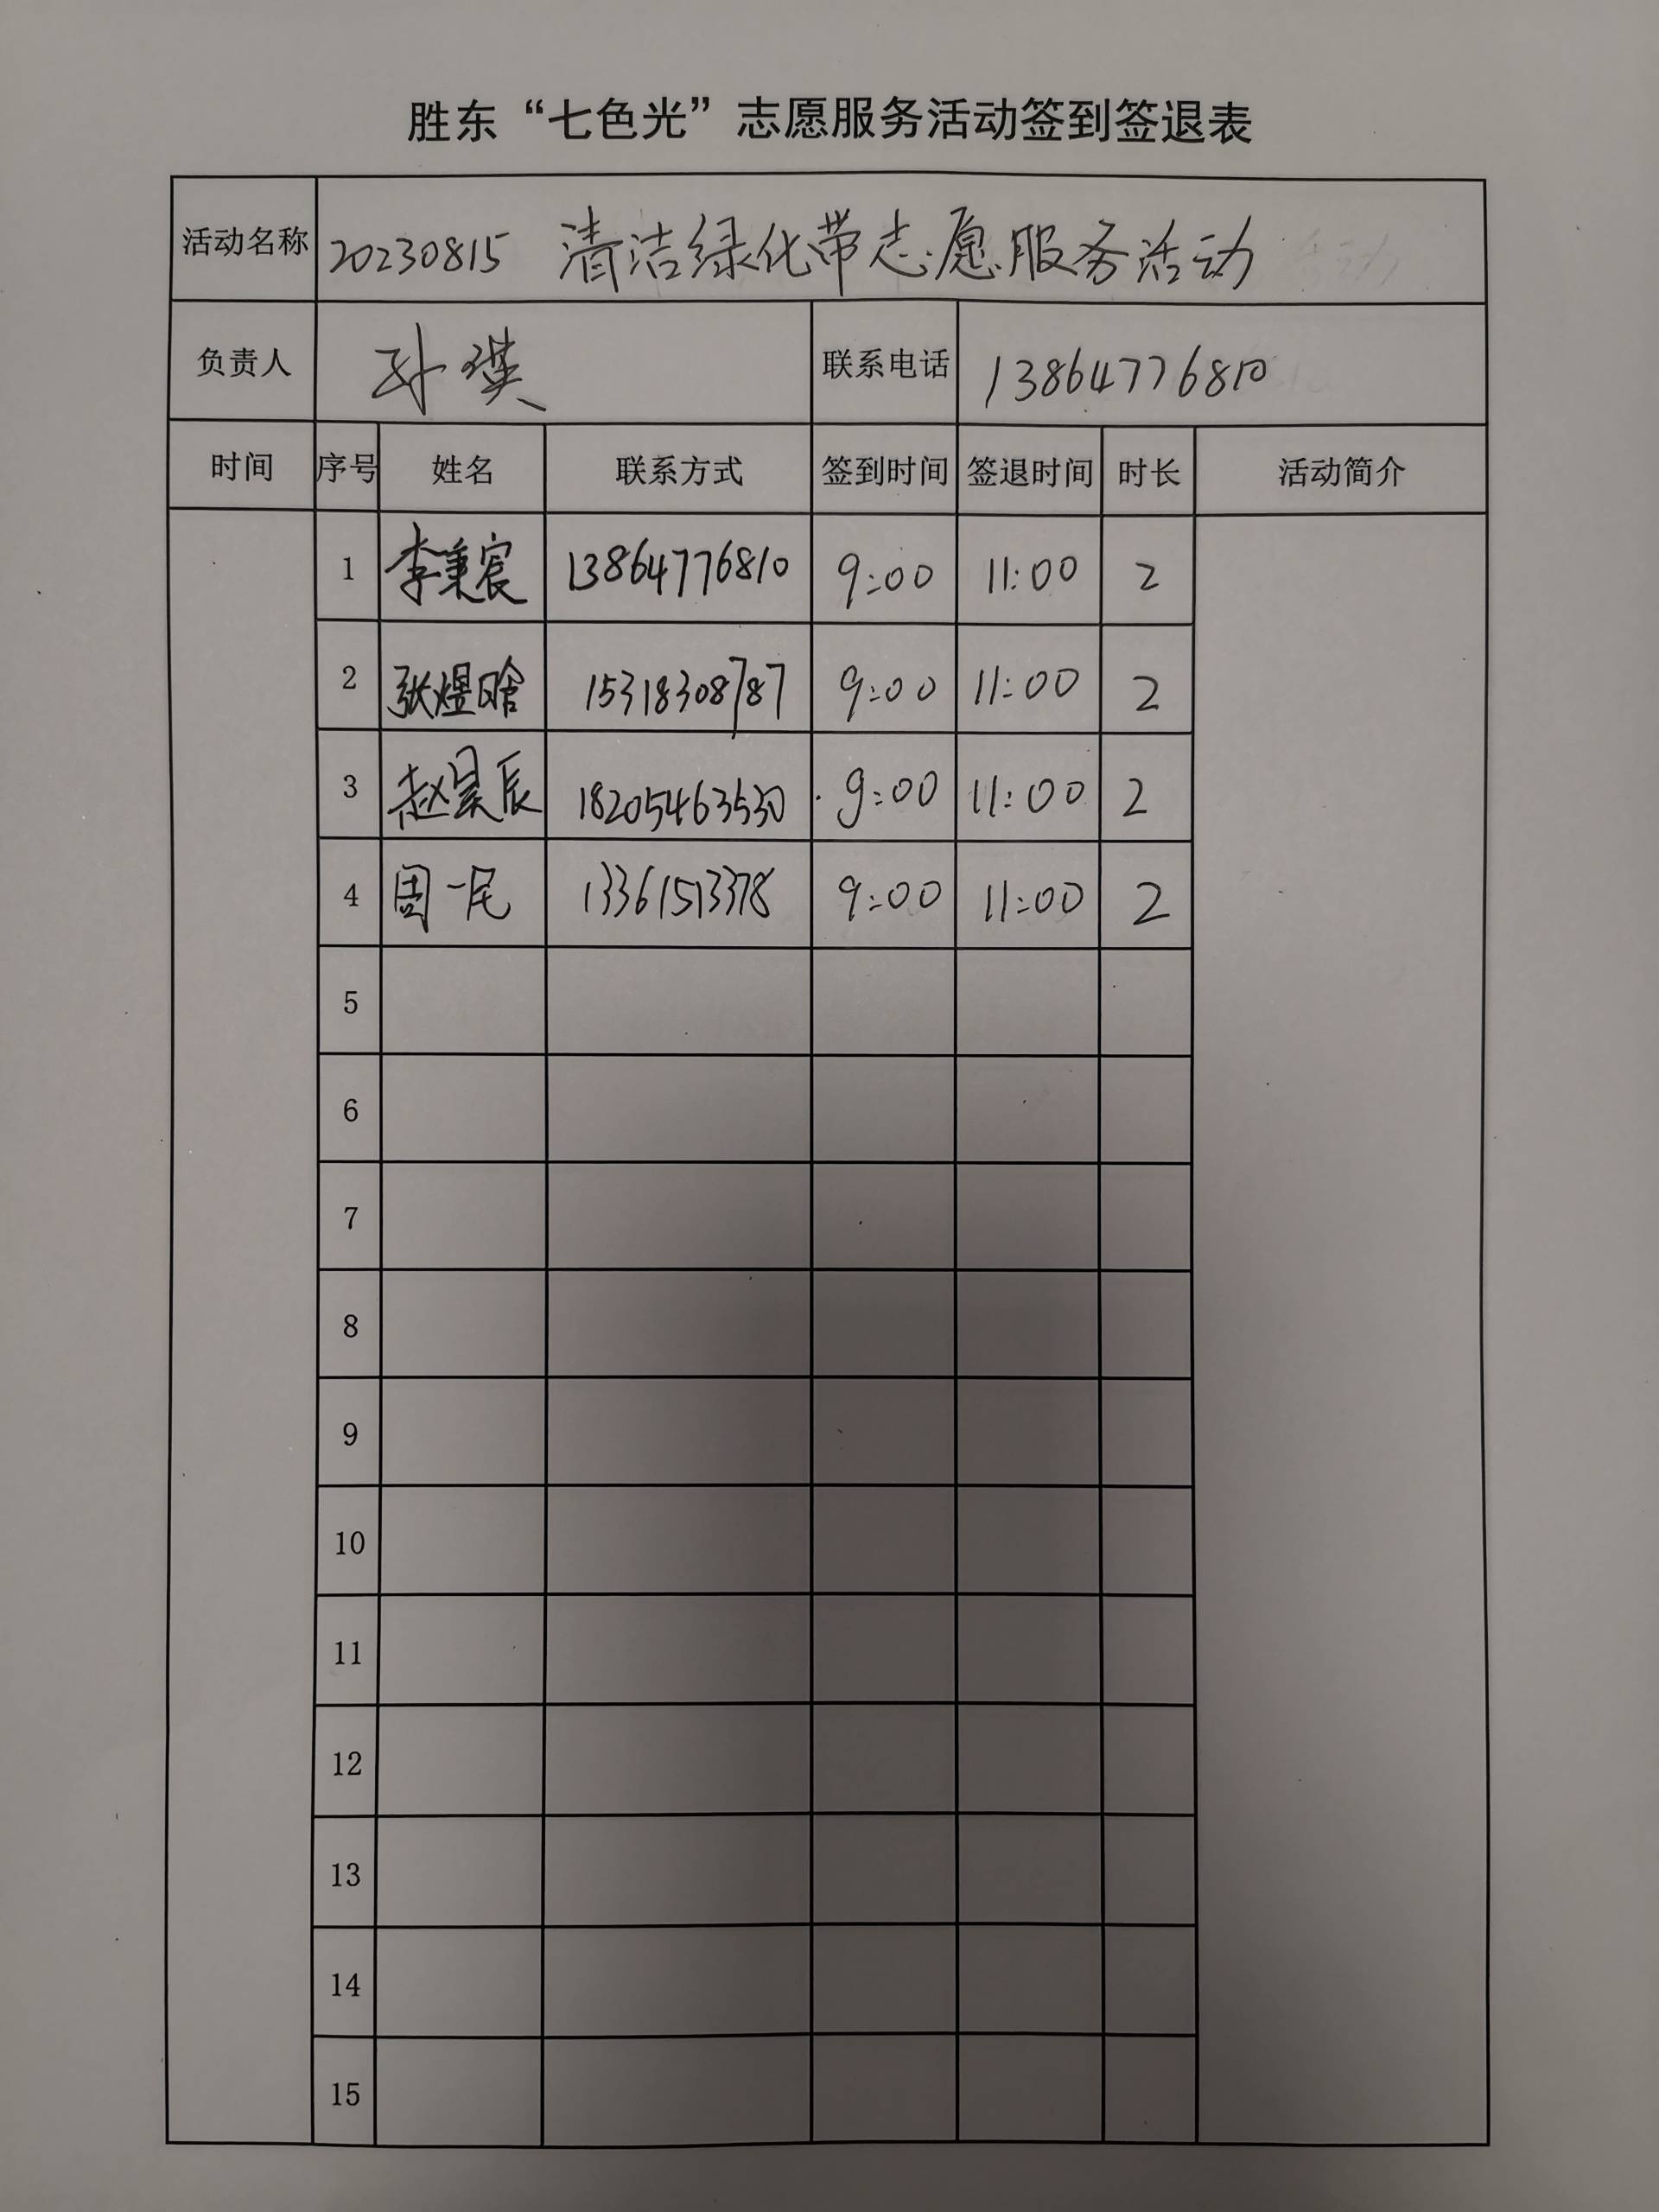 胜东“七色光”志愿服务活动签到签退表
活动名称 20230815 清洁绿化带志愿服务活动
负责人 孙瑛 联系电话 13864776810
时间 序号 姓名 联系方式 签到时间 签退时间 时长 活动简介
1 李秉宸 13864776810 9:00 11:00 2
2 张煜晗 15318308787 9:00 11:00 2
3 赵昊辰 18205463530 9:00 11:00 2
4 周一 13361513378 9:00 11:00 2
5
6
7
8
9
10
11
12
13
14
15